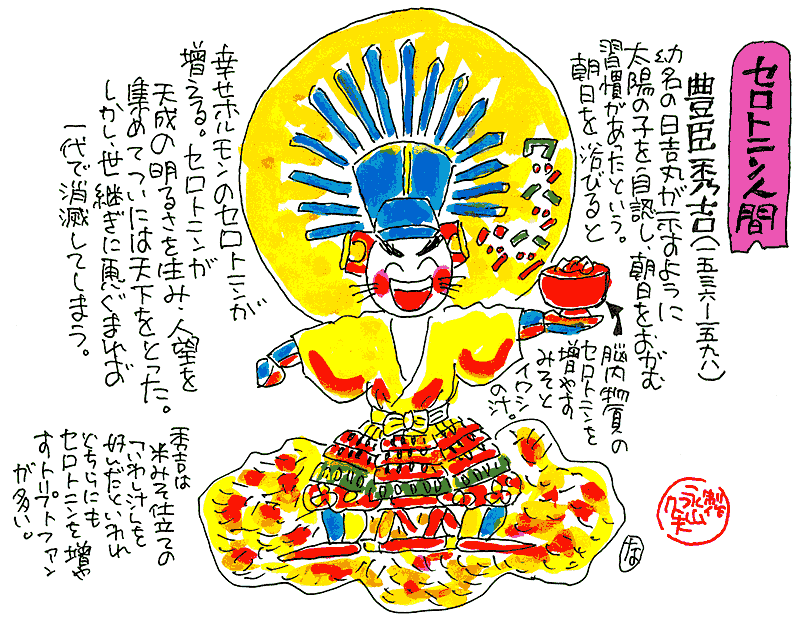 セロトニン人間
豊臣秀吉(一五三六ー一五九八)
幼名の日吉丸が示すように
太陽の子を自認し、朝日をおがむ
習慣があったという。
朝日を浴びると
幸せホルモンのセロトニンが
増える。セロトニンが
天成の明るさを生み、人望を
集めて、ついには天下をとった。
しかし、世継ぎに恵ぐまれず
一代で消滅してしまう。
ワッハッハッハッ
脳内物質の
セロトニンを
増やす
みそと
イワシ
の汁。
秀吉は
米みそ仕立ての
「いわし汁」を
好んだといわれ
どちらにも
セロトニンを増や
すトリプトファン
が多い。
な